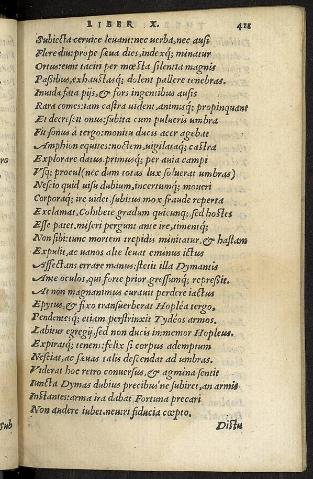 LIBER X. 428
Subiecta ceruice leuant: nec uerba, nec ausi
Flere diu: prope sæua dies, indexq; minatur
Ortus: eunt taciti per mœsta silentia magnis
Passibus, exhaustasq; dolent pallere tenebras.
Inuida fata pijs, & fors ingentibus ausis
Rara comes: iam castra uident, animisq; propinquant
Et decrescit onus: subita cum pulueris umbra
Fit sonus à tergo: monitu ducis acer agebat
Amphion equites: noctem, uigilataq; castra
Explorare datus. primusq; per auia campi
Vsq; procul (nec dum totas lux soluerat umbras)
Nescio quid uisu dubium, incertumq; moueri
Corporaq; ire uidet. subitus mox fraude reperta
Exclamat, Cohibete gradum quicunq;. sed hostes
Esse patet, miseri pergunt ante ire, timentq;
Non sibi: tunc mortem trepidis minitatur, & hastam
Expulit, ac uanos alte leuat eminus ictus
Affectans errare manus: stetit illa Dymantis
Ante oculos, qui forte prior. gressumq; repressit.
At non magnanimus curauit perdere iactus
Epytus, & fixo transuerberat Hoplea tergo.
Pendentisq; etiam perstrinxit Tydeos armos.
Labitur egregij, sed non ducis immemor Hopleus.
Expiratq; tenens: felix si corpus ademptum
Nesciat, ac sæuas talis descendat ad umbras.
Viderat hoc retro conuersus, & agmina sentit
Iuncta Dymas dubius precibus'ne subiret, an armis
Instantes: arma ira dabat Fortuna precari
Non audere iubet. neutri fiducia cœpto.
Distu